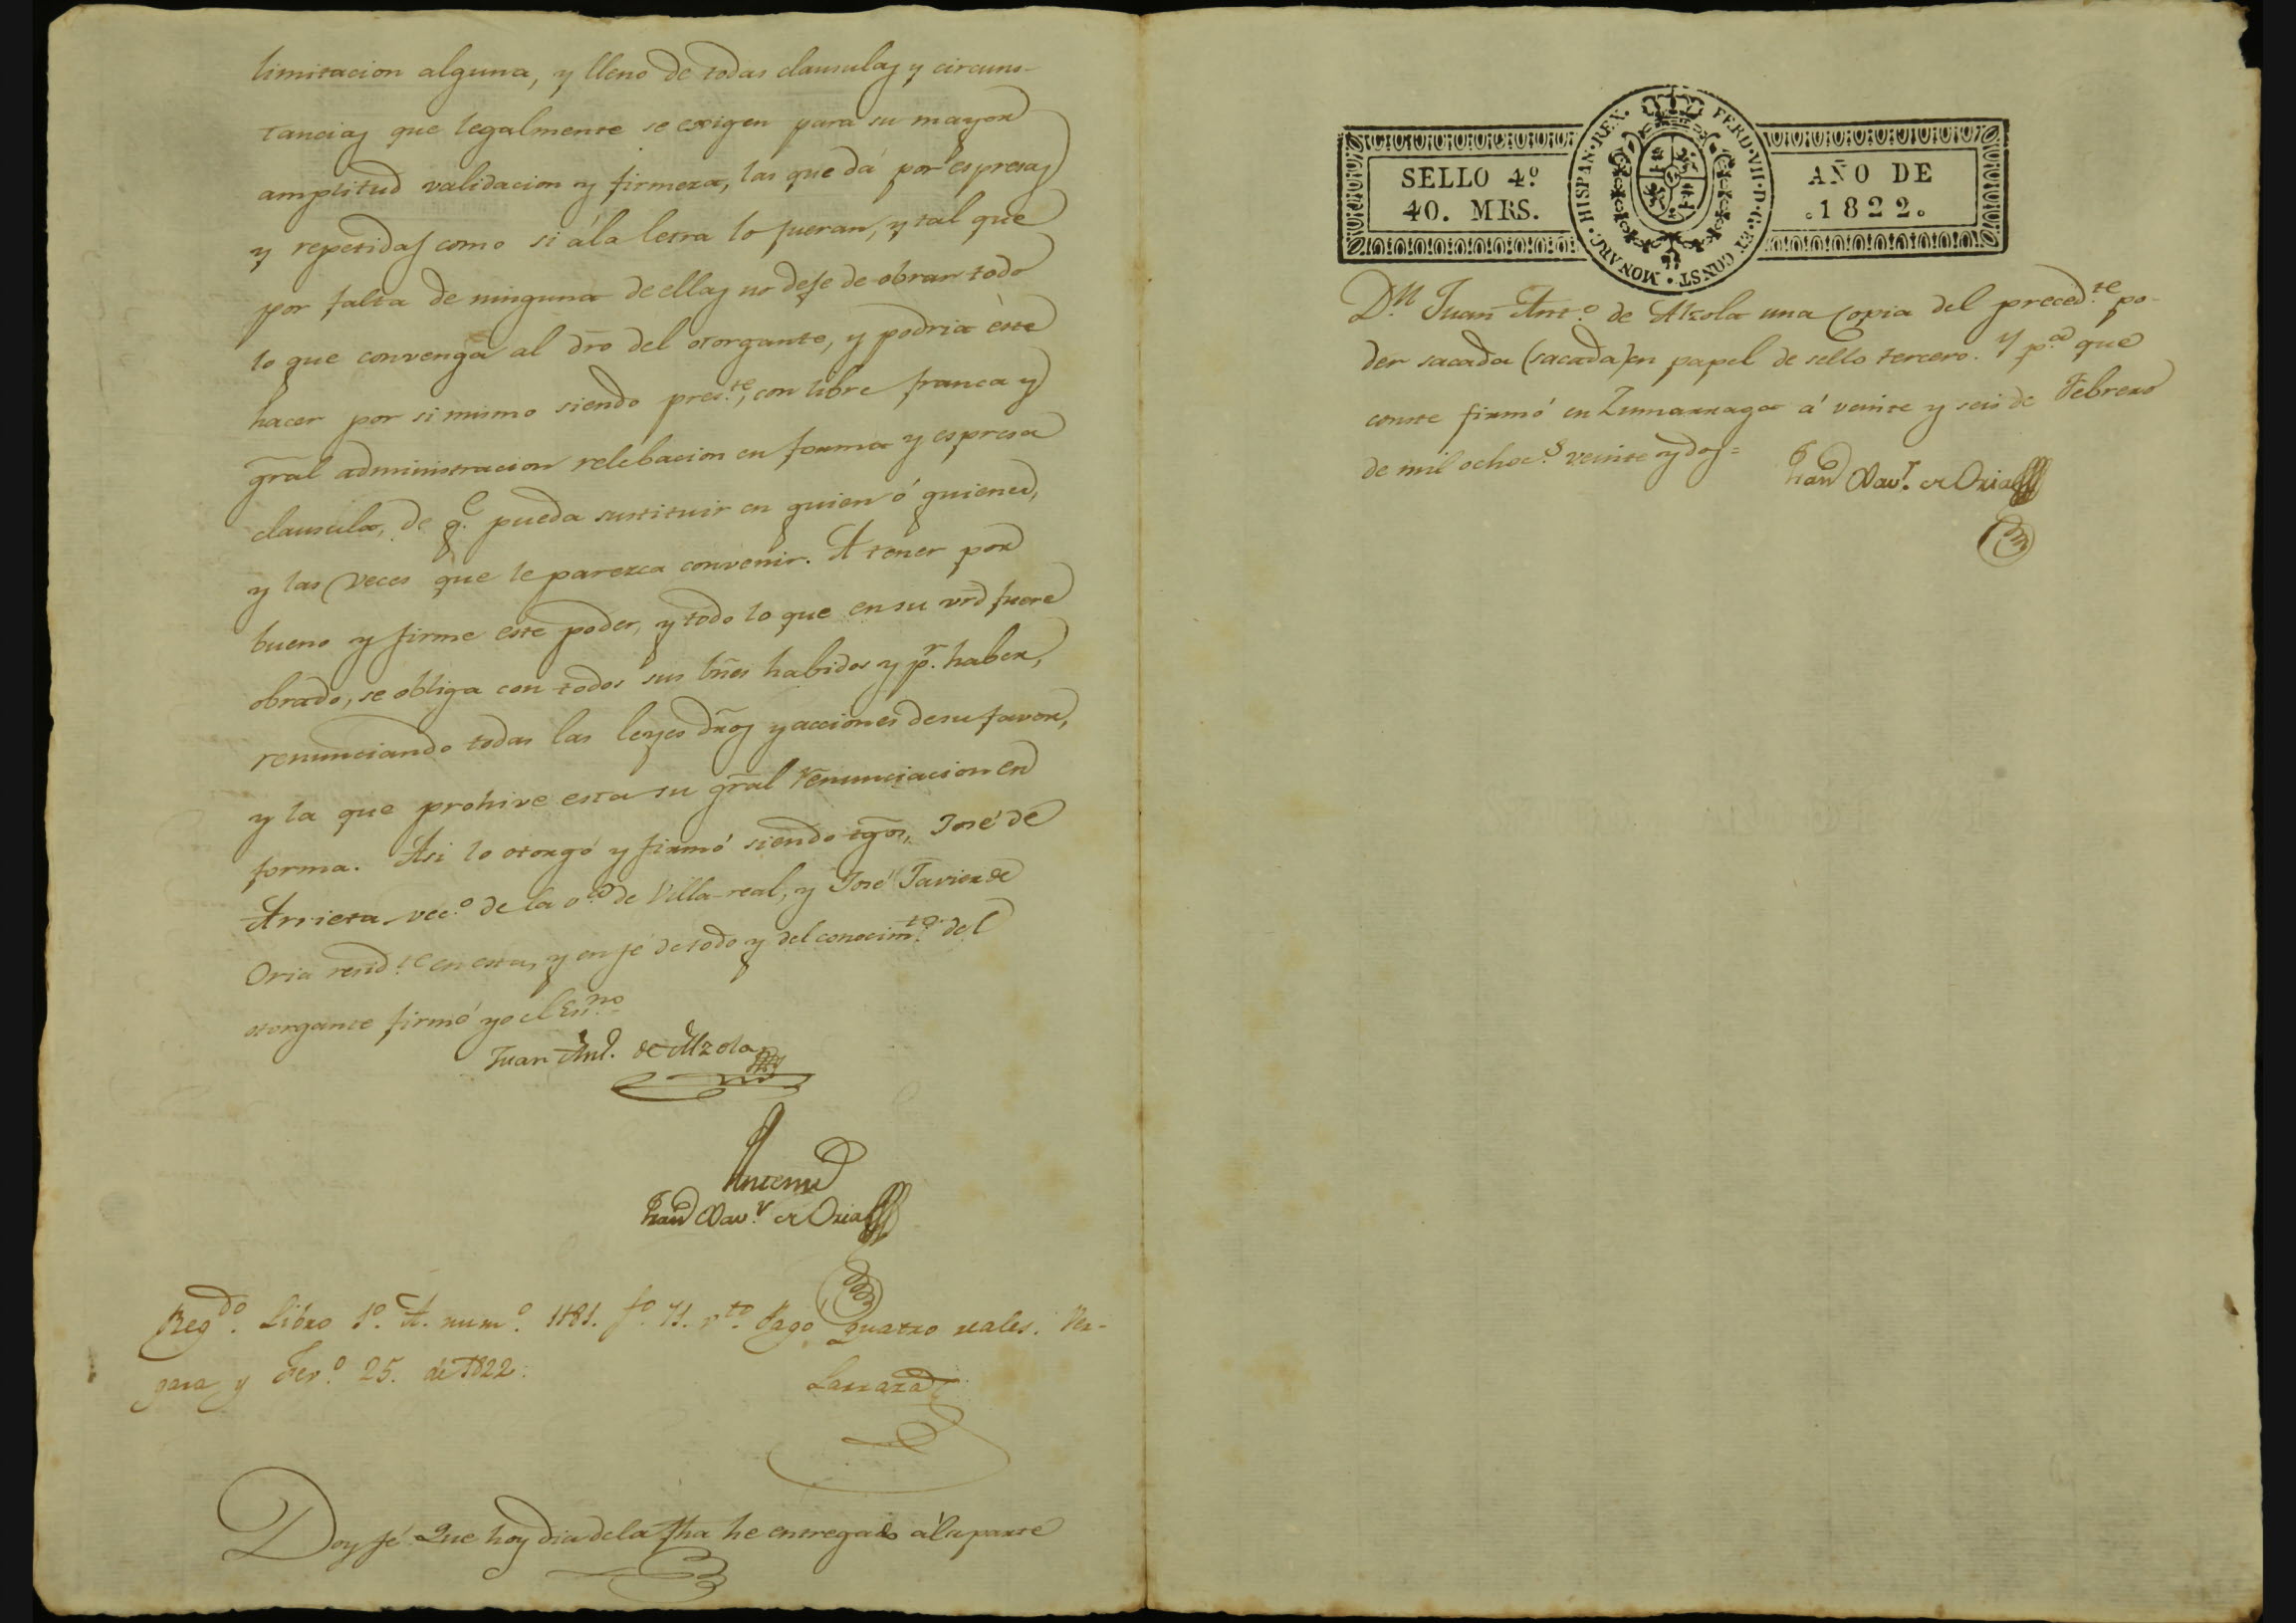 limitacion alguna, y lleno de todas clausulas y circuns-
tancias que legalmente se exigen para su mayor
amplitud validacion y firmeza, las que dá por espresas
y repetidas como si á la letra lo fueran, y tal que
por falta de ninguna de ellas no deje de obrar todo
lo que convenga al dr̃o del otorgante, y podria éste
hacer por si mismo siendo pres.te, con libre franca y
gr̃al administracion relebacion en forma y espresa
clausula, de q.e pueda sustituir en quien ó quienes,
y las veces que le parezca convenir. A tener por
bueno y firme este poder, y todo lo que en su vrd fuere
obrado, se obliga con todos sus bñes habidos y p.r haber,
renunciando todas las leyes dr̃os y acciones de su favor,
y la que prohive esta su gr̃al renunciacion en
forma. Asi lo otorgó y firmó siendo tgõs, José de
Arrieta vec.o de la v.a de Villa-real, y José Javier de
Oria resid.te en esta, y en fé de todo y del conocim.to del
otorgante firmó yo el Es.no
Juan Ant.o de Alzola
Antemi
Fran Xav.r de Oria
Reg.do Libro 1.o A. num.o 1181. f.o 71. v.to Pago Quatro reales. Ver-
gara y Fev.o 25. de 1822.
Doy fé Que hoy dia de la fha he entregado á la parte
SELLO 4.o
40. MRS.
HISPAN. REX. FERD. VII. D. G. ET CONST. MONARC.
AÑO DE
1822.
D.n Juan Ant.o de Alzola una Copia del preced.te po-
der sacada (sacada) en papel de sello tercero. Y p.a que
conste firmó en Zumarraga á veinte y seis de Febrero
de mil ochoc.s veinte y dos=
Fran Xav.r de Oria